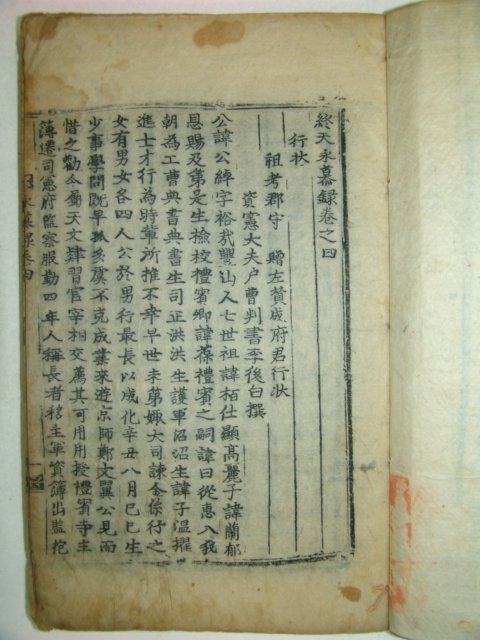 終天永慕録卷之四
行狀
祖考郡守 贈左贊成府君行狀
資憲大夫戶曹判書李後白撰
公諱公綽字裕哉豐山人七世祖諱柏仕顯高麗子諱蘭郁
恩賜及第是生檢校禮賓卿諱葆禮賓之嗣諱曰從惠入我
朝爲工曹典書典書生司正洪洪生護軍沼沼生諱子溫擢
進士才行爲時輩所推不幸早世未第娵大司諫金係行之
女有男女各四人公於男行最長以成化辛丑八月己巳生
少事學問旣早孤哀虞不克成業來遊京師鄭文翼公見而
惜之勸令屬天文肄習官字相交薦其可用用授禮賓寺主
簿遷司憲府監察服勤四年人稱長者移主軍資簿出監抱
永慕録卷四